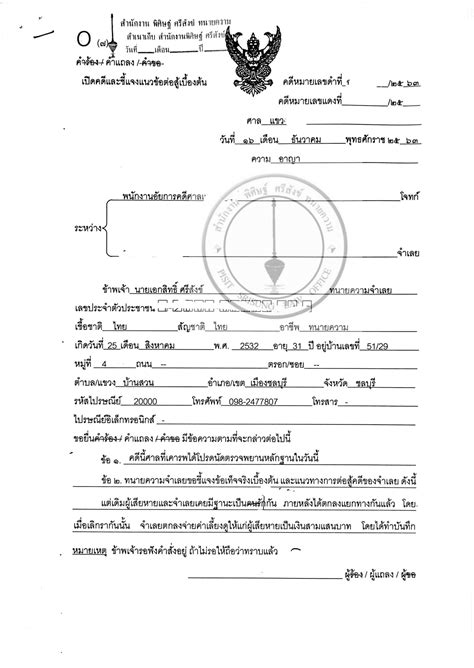 สำนักงาน พิศิษฐ์ ศรีสังข์ ทนายความ
สำเนาเก็บ สำนักงานพิศิษฐ์ ศรีสังข์
วันที่ เดือน ปี
O (๗)
คำร้อง / คำแถลง / คำขอ
เปิดคดีและชี้แจงแนวข้อต่อสู้เบื้องต้น คดีหมายเลขดำที่ /๒๕ ๖๓
คดีหมายเลขแดงที่ /๒๕
ศาล แขว
วันที่ ๑๖ เดือน ธันวาคม พุทธศักราช ๒๕ ๖๓
ความ อาญา
พนักงานอัยการคดีศาล โจทก์
ระหว่าง
จำเลย
สำนักงาน พิศิษฐ์ ศรีสังข์ ทนายความ
PISIT SRISUNG OFFICE
ข้าพเจ้า นายเอกสิทธิ์ ศรีสังข์ ทนายความจำเลย
เลขประจำตัวประชาชน
เชื้อชาติ ไทย สัญชาติ ไทย อาชีพ ทนายความ
เกิดวันที่ 25 เดือน สิงหาคม พ.ศ. 2532 อายุ 31 ปี อยู่บ้านเลขที่ 51/29
หมู่ที่ 4 ถนน -- ตรอก/ซอย --
ตำบล/แขวง บ้านสวน อำเภอ/เขต เมืองชลบุรี จังหวัด ชลบุรี
รหัสไปรษณีย์ 20000 โทรศัพท์ 098-2477807 โทรสาร -
ไปรษณีย์อิเล็กทรอนิกส์ -
ขอยื่นคำร้อง / คำแถลง / คำขอ มีข้อความตามที่จะกล่าวต่อไปนี้
ข้อ ๑. คดีนี้ศาลที่เคารพได้โปรดนัดตรวจพยานหลักฐานในวันนี้
ข้อ ๒. ทนายความจำเลยขอชี้แจงข้อเท็จจริงเบื้องต้น และแนวทางการต่อสู้คดีของจำเลย ดังนี้
แต่เดิมผู้เสียหายและจำเลยเคยมีฐานะเป็นกัน ภายหลังได้ตกลงแยกทางกันแล้ว โดย
เมื่อเลิกรากันนั้น จำเลยตกลงจ่ายค่าเลี้ยงดูให้แก่ผู้เสียหายเป็นเงินสามแสนบาท โดยได้ทำบันทึก
หมายเหตุ ข้าพเจ้ารอฟังคำสั่งอยู่ ถ้าไม่รอให้ถือว่าทราบแล้ว
ผู้ร้อง / ผู้แถลง / ผู้ขอ